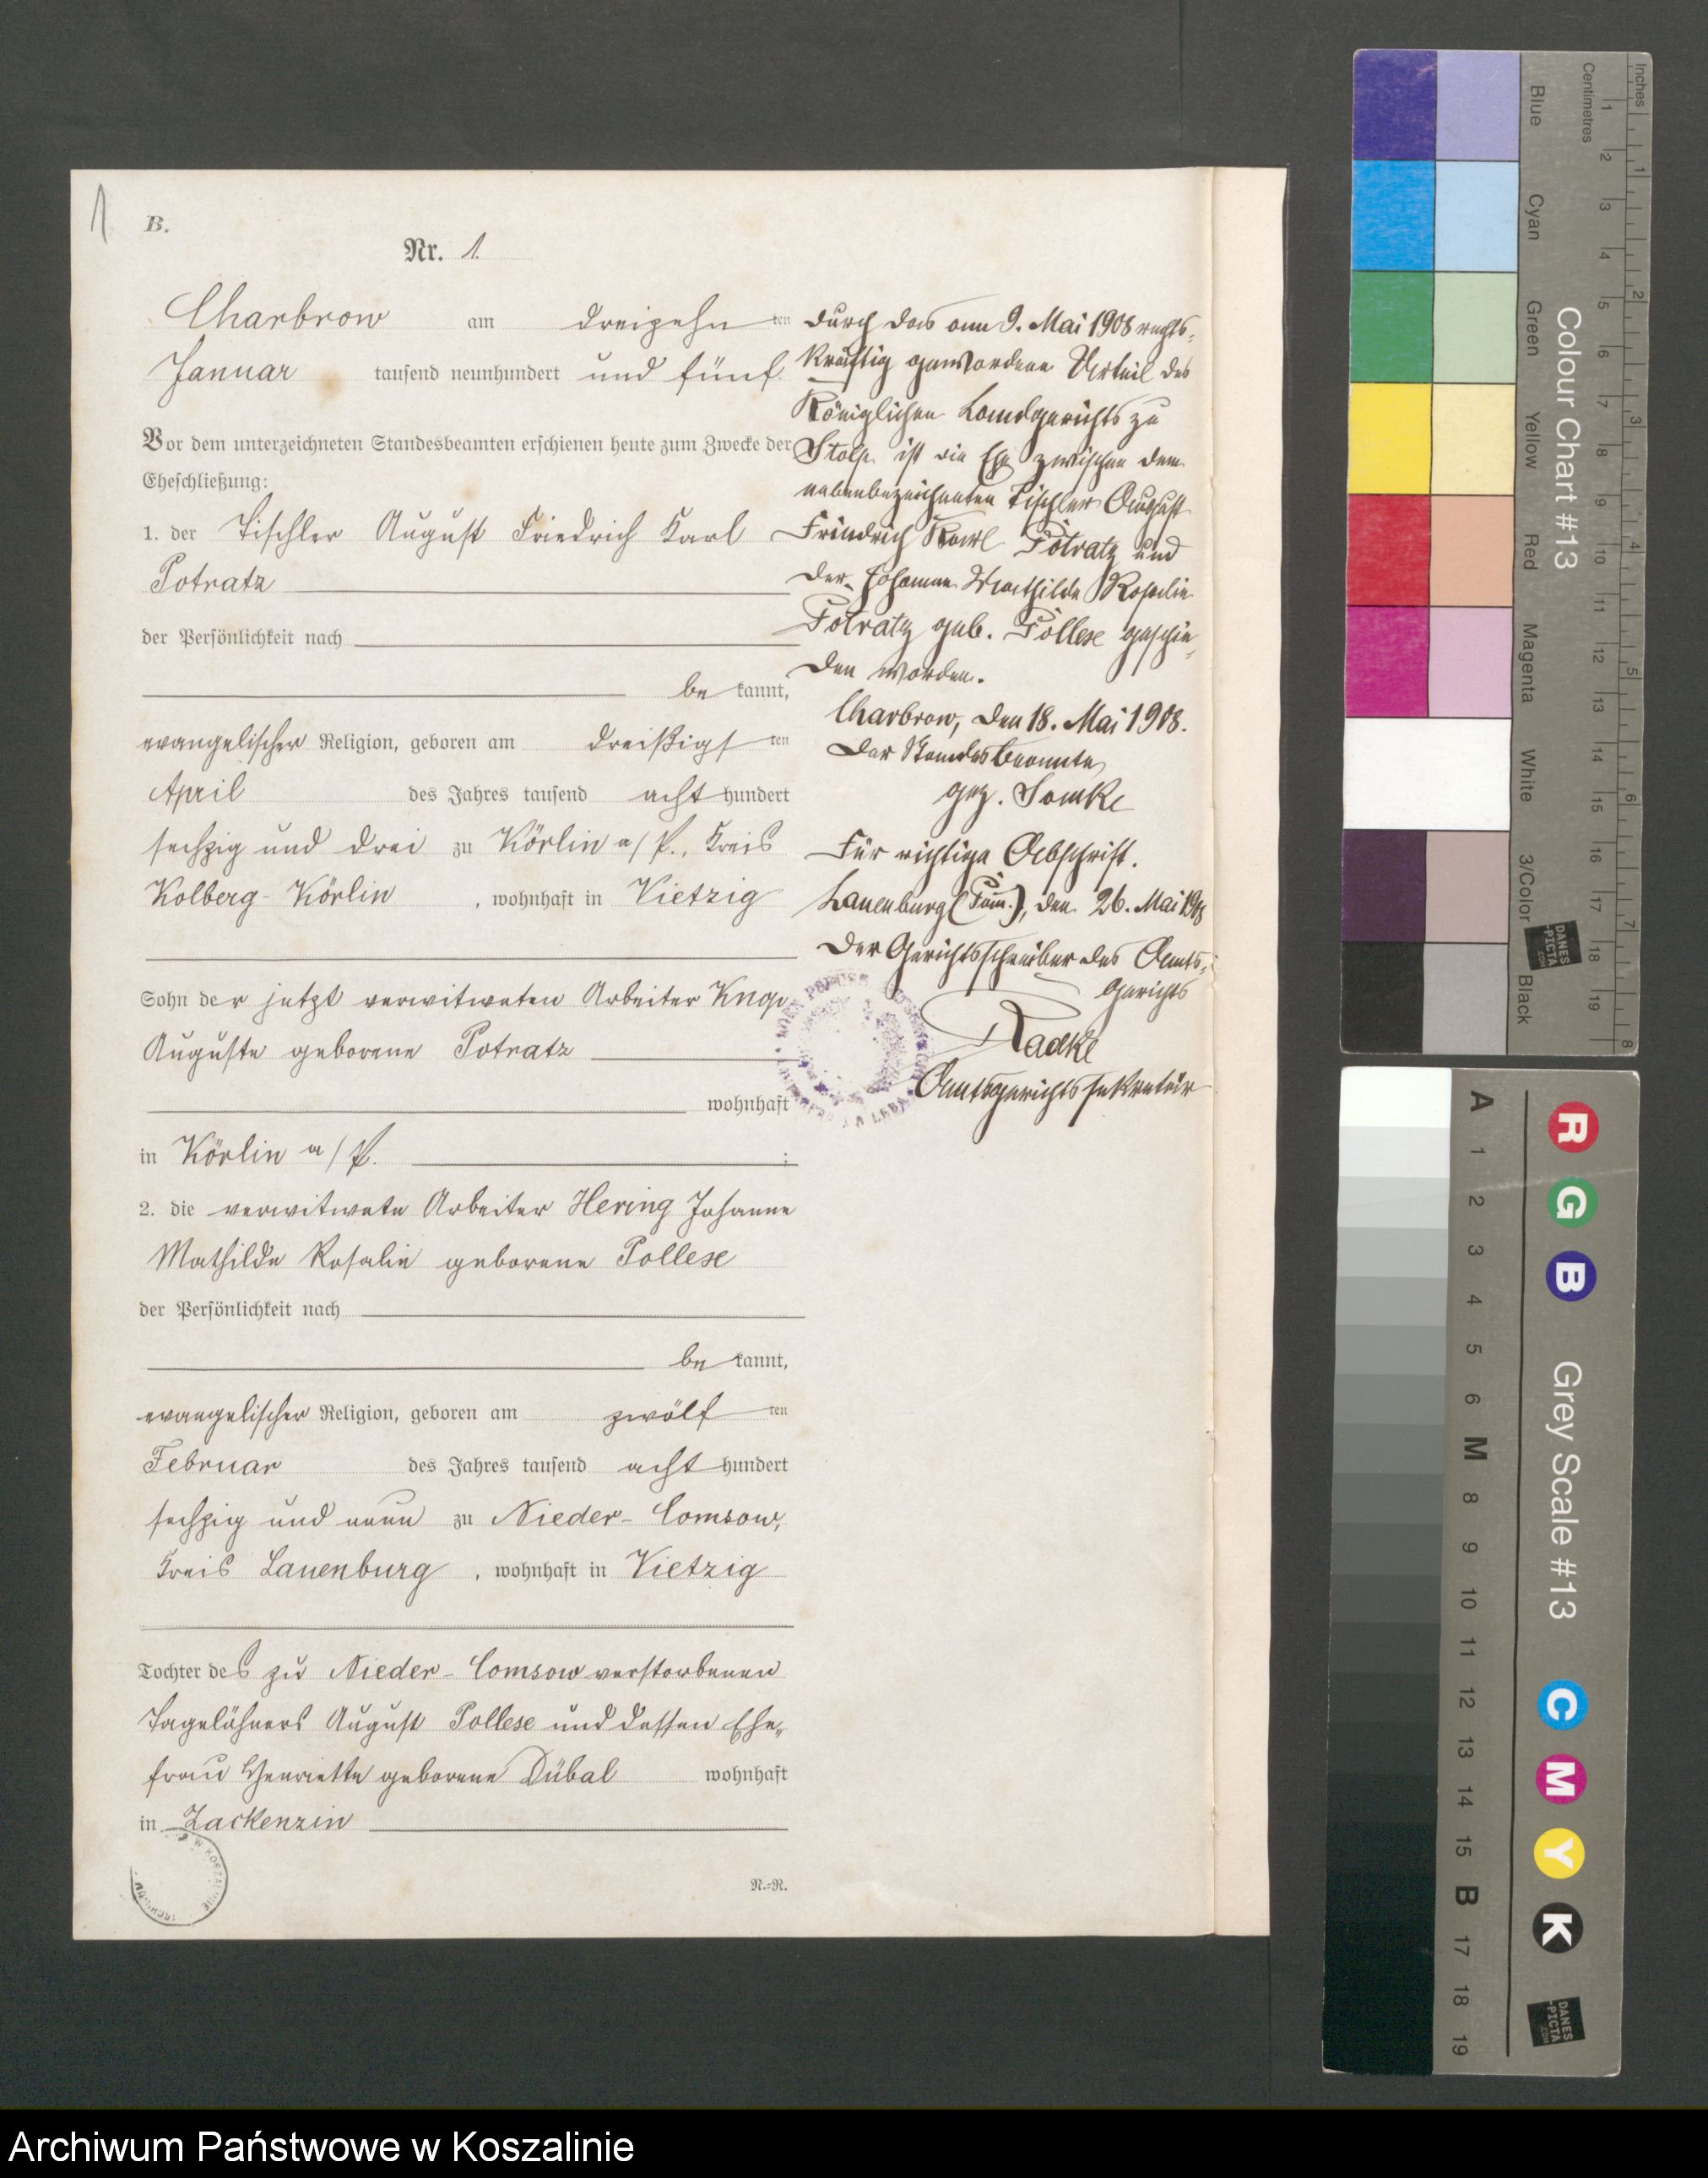 1
B.
Nr. 1.
Charbrow am dreizehn ten
Januar tausend neunhundert und fünf
Vor dem unterzeichneten Standesbeamten erschienen heute zum Zwecke der
Eheschließung:
1. der Tischler August Friedrich Karl
Potratz
der Persönlichkeit nach
be kannt,
evangelischer Religion, geboren am dreißigs ten
April des Jahres tausend acht hundert
sechzig und drei zu Körlin a/P., Kreis
Kolberg-Körlin, wohnhaft in Vietzig
Sohn der jetzt verwitweten Arbeiter Knop
Auguste geborene Potratz
wohnhaft
in Körlin a/P. ;
2. die verwitwete Arbeiter Hering Johanne
Mathilde Rosalie geborene Pollese
der Persönlichkeit nach
be kannt,
evangelischer Religion, geboren am zwölf ten
Februar des Jahres tausend acht hundert
sechzig und neun zu Nieder-Comsow,
Kreis Lauenburg, wohnhaft in Vietzig
Tochter des zu Nieder-Comsow verstorbenen
Tagelöhners August Pollese und dessen Ehe-
frau Henriette geborene Dübal wohnhaft
in Zackenzin
N.=N.
Durch das am 9. Mai 1908 rechts-
kräftig gewordene Urteil des
Königlichen Landgerichts zu
Stolp ist die Ehe zwischen dem
nebenbezeichneten Tischler August
Friedrich Karl Potratz und
der Johanne Mathilde Rosalie
Potratz geb. Pollese geschie-
den worden.
Charbrow, den 18. Mai 1908.
Der Standesbeamte
gez.
Für richtige Abschrift.
Lauenburg (Pom.), den 26. Mai 1908
Der Gerichtsschreiber des Amts-
gerichts
Radke
Amtsgerichtssekretär
W KOSZALINIE
Inches
Centimetres
1 2 3 4 5 6 7 8 9 10 11 12 13 14 15 16 17 18 19
1 2 3 4 5 6 7 8
Blue
Cyan
Green
Yellow
Red
Magenta
White
3/Color
Black
Colour Chart #13
DANES
-PICTA
.COM
A 1 2 3 4 5 6 M 8 9 10 11 12 13 14 15 B 17 18 19
R G B
Grey Scale #13
C M Y K
DANES
-PICTA
.COM
Archiwum Państwowe w Koszalinie